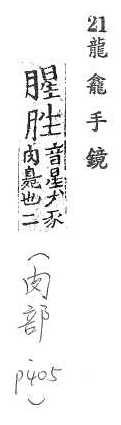 21 龍龕手鏡
腥胜音星犬豕
肉臭也二
(肉部 p405)